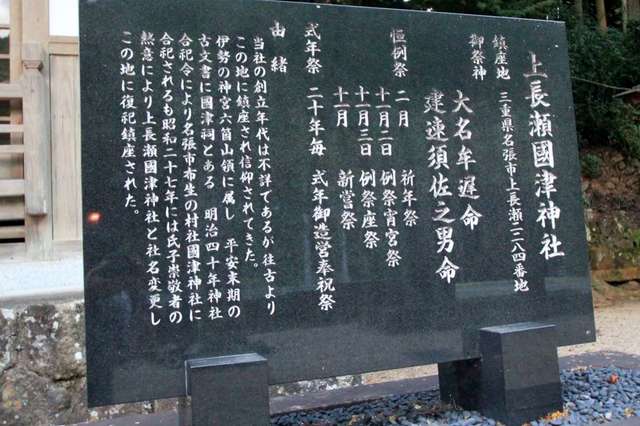 上長瀬國津神社
鎮座地 三重県名張市上長瀬二二八四番地
御祭神 大名牟遅命
建速須佐之男命
恒例祭 二月 祈年祭
十一月二日 例祭宵宮祭
十一月三日 例祭座祭
十一月 新嘗祭
式年祭 二十年毎 式年御造営奉祝祭
由緒
当社の創立年代は不詳であるが往古より
この地に鎮座され信仰されてきた。
伊勢の神宮六箇山領に属し 平安末期の
古文書に國津祠とある 明治四十年神社
合祀令により名張市布生の村社國津神社に
合祀されるも昭和二十七年には氏子崇敬者の
熱意により上長瀬國津神社と社名変更し
この地に復祀鎮座された。